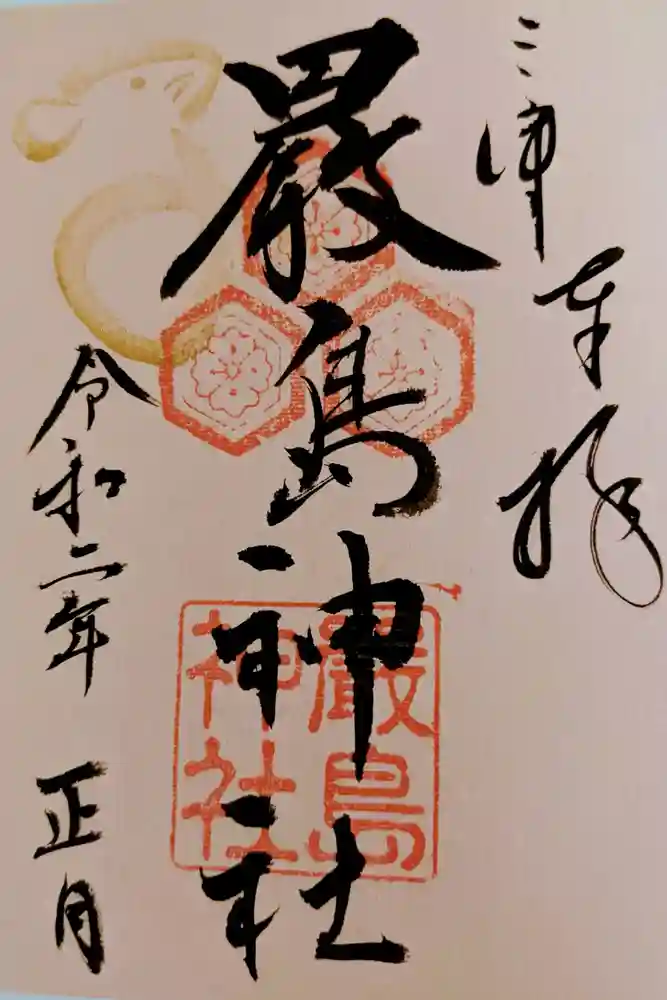 三津奉拝
嚴島神社
嚴島
神社
令和二年 正月